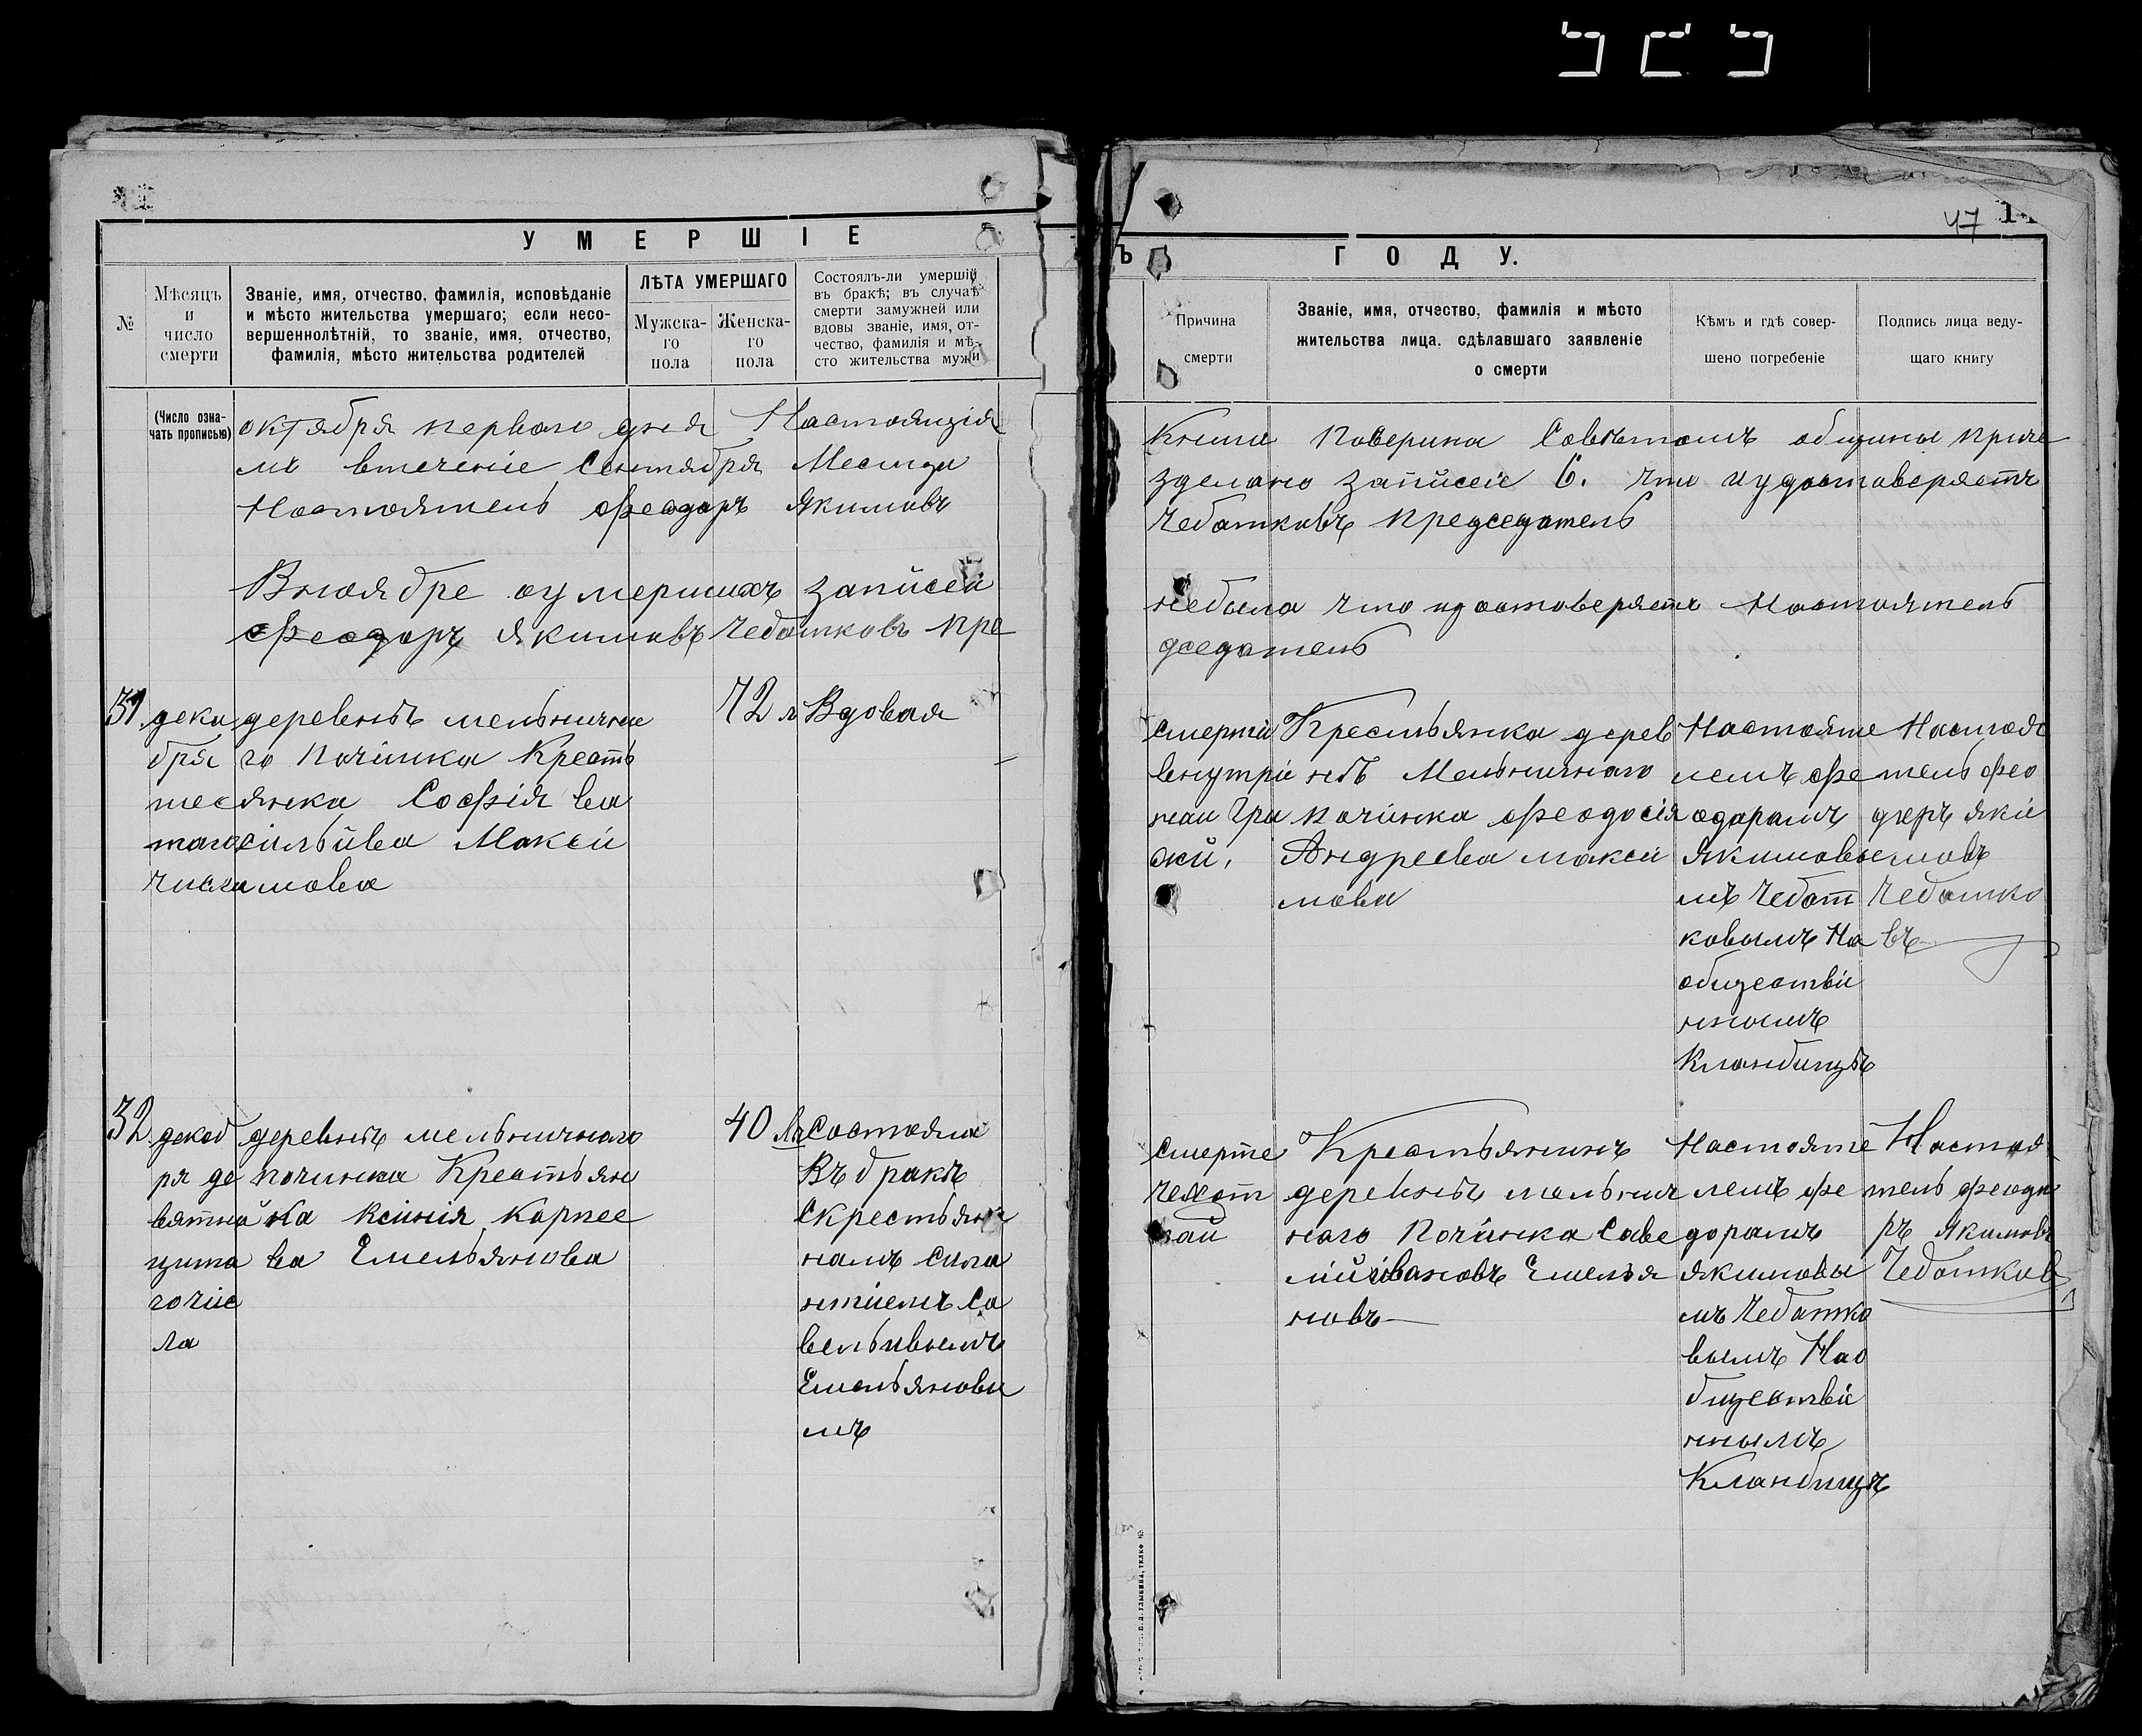 47
УМЕРШІЕ
Ъ ГОДУ.
№
Мѣсяцъ
и
число
смерти
Званіе, имя, отчество, фамилія, исповѣданіе
и мѣсто жительства умершаго; если несо-
вершеннолѣтній, то званіе, имя, отчество,
фамилія, мѣсто жительства родителей
ЛѢТА УМЕРШАГО
Мужска-
го
пола
Женска-
го
пола
Состоялъ-ли умершій
въ бракѣ; въ случаѣ
смерти замужней или
вдовы званіе, имя, от-
чество, фамилія и мѣ-
сто жительства мужа
Причина
смерти
Званіе, имя, отчество, фамилія и мѣсто
жительства лица, сдѣлавшаго заявленіе
о смерти
Кѣмъ и гдѣ совер-
шено погребеніе
Подпись лица веду-
щаго книгу
(Число озна-
чать прописью)
октября перваго дня Настоящія
мъ втеченіе Сентября Месяца
Настоятель Феодоръ Якимовъ
Книга Поверина Советомъ общины приче
зделано записеіе 6. что иудостоверяетъ
Чебатковъ председатель
Вноябре оумершихъ записей
Феодоръ Якимовъ Чебатковъ пре
небыла что удостоверяетъ Настоятель
дседатель
31
дека
бря
шес
таго
числа
деревнѣ мельнична
го Починка Кресть
янка Софія Ва
сильйва Макси
мова
72 л
Вдовая
Смерті
внутріе
наи Гри
жй,
Крестьянка дерев
нѣ Мельничнаго
Починка Феодосія
Андреева макси
мова
Настояте
лемъ Фе
одорамъ
Якимовы
мъ Чебат
ковымъ На
обществі
нномъ
Кланбищѣ
Настоя
тель Фео
доръ Яки
мовъ
Чебатко
въ
32
декаб
ря де
вятна
цата
гочис
ла
деревнѣ мельничнаго
починка Крестьян
ка Ксинія Карнее
ва Емельянова
40 Л
Состояла
Въ бракѣ
Скрестьяни
намъ Сила
нтіемъ Са
вельивымъ
Емельяновы
мъ
Смерте
Чехот
наи
Крестьянинъ
деревнѣ мельнич
наго Починка Саве
лій ивановъ Емелья
новъ
Настояте
лемъ Фе
дорамъ
якимовы
мъ Чебатко
вымъ Нао
бществі
ннымъ
Кланбищѣ
Настоя
тель Феодо
ръ Якимовъ
Чебатков